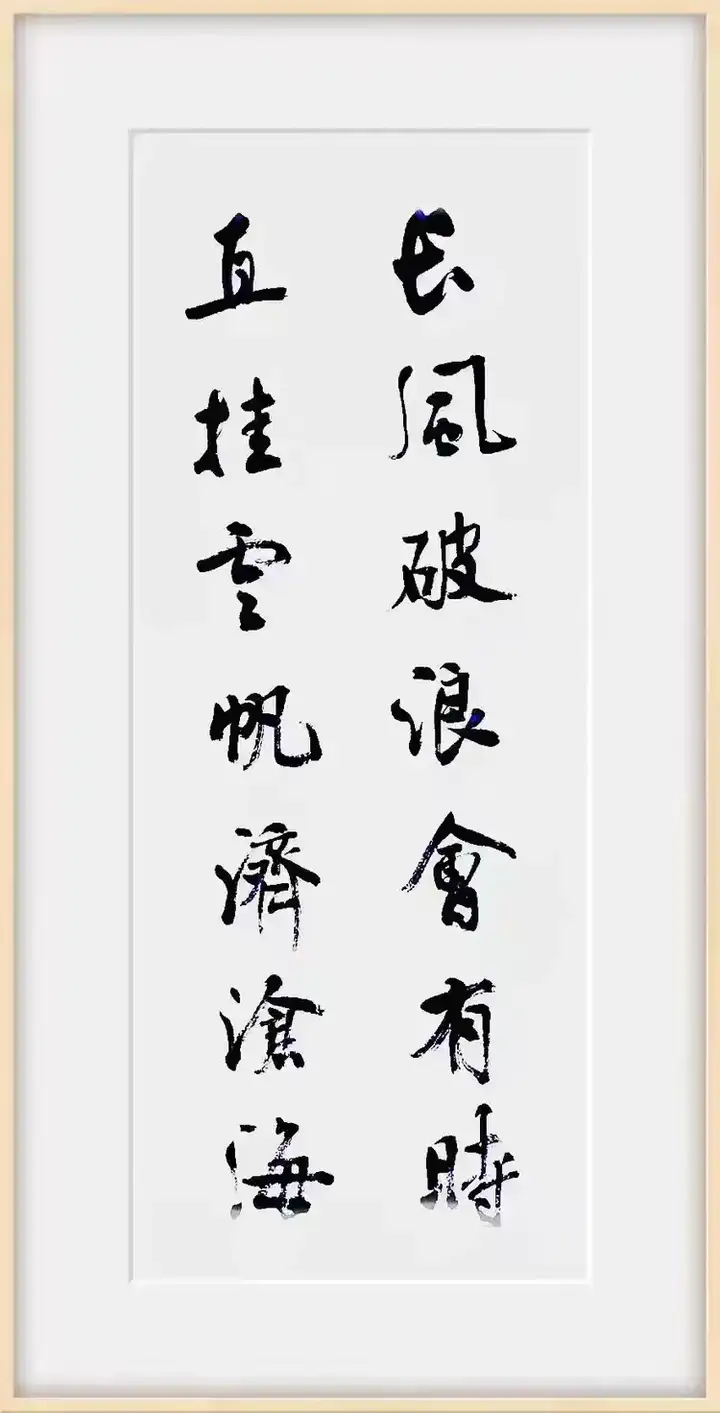 长風破浪會有時
直挂雲帆濟滄海